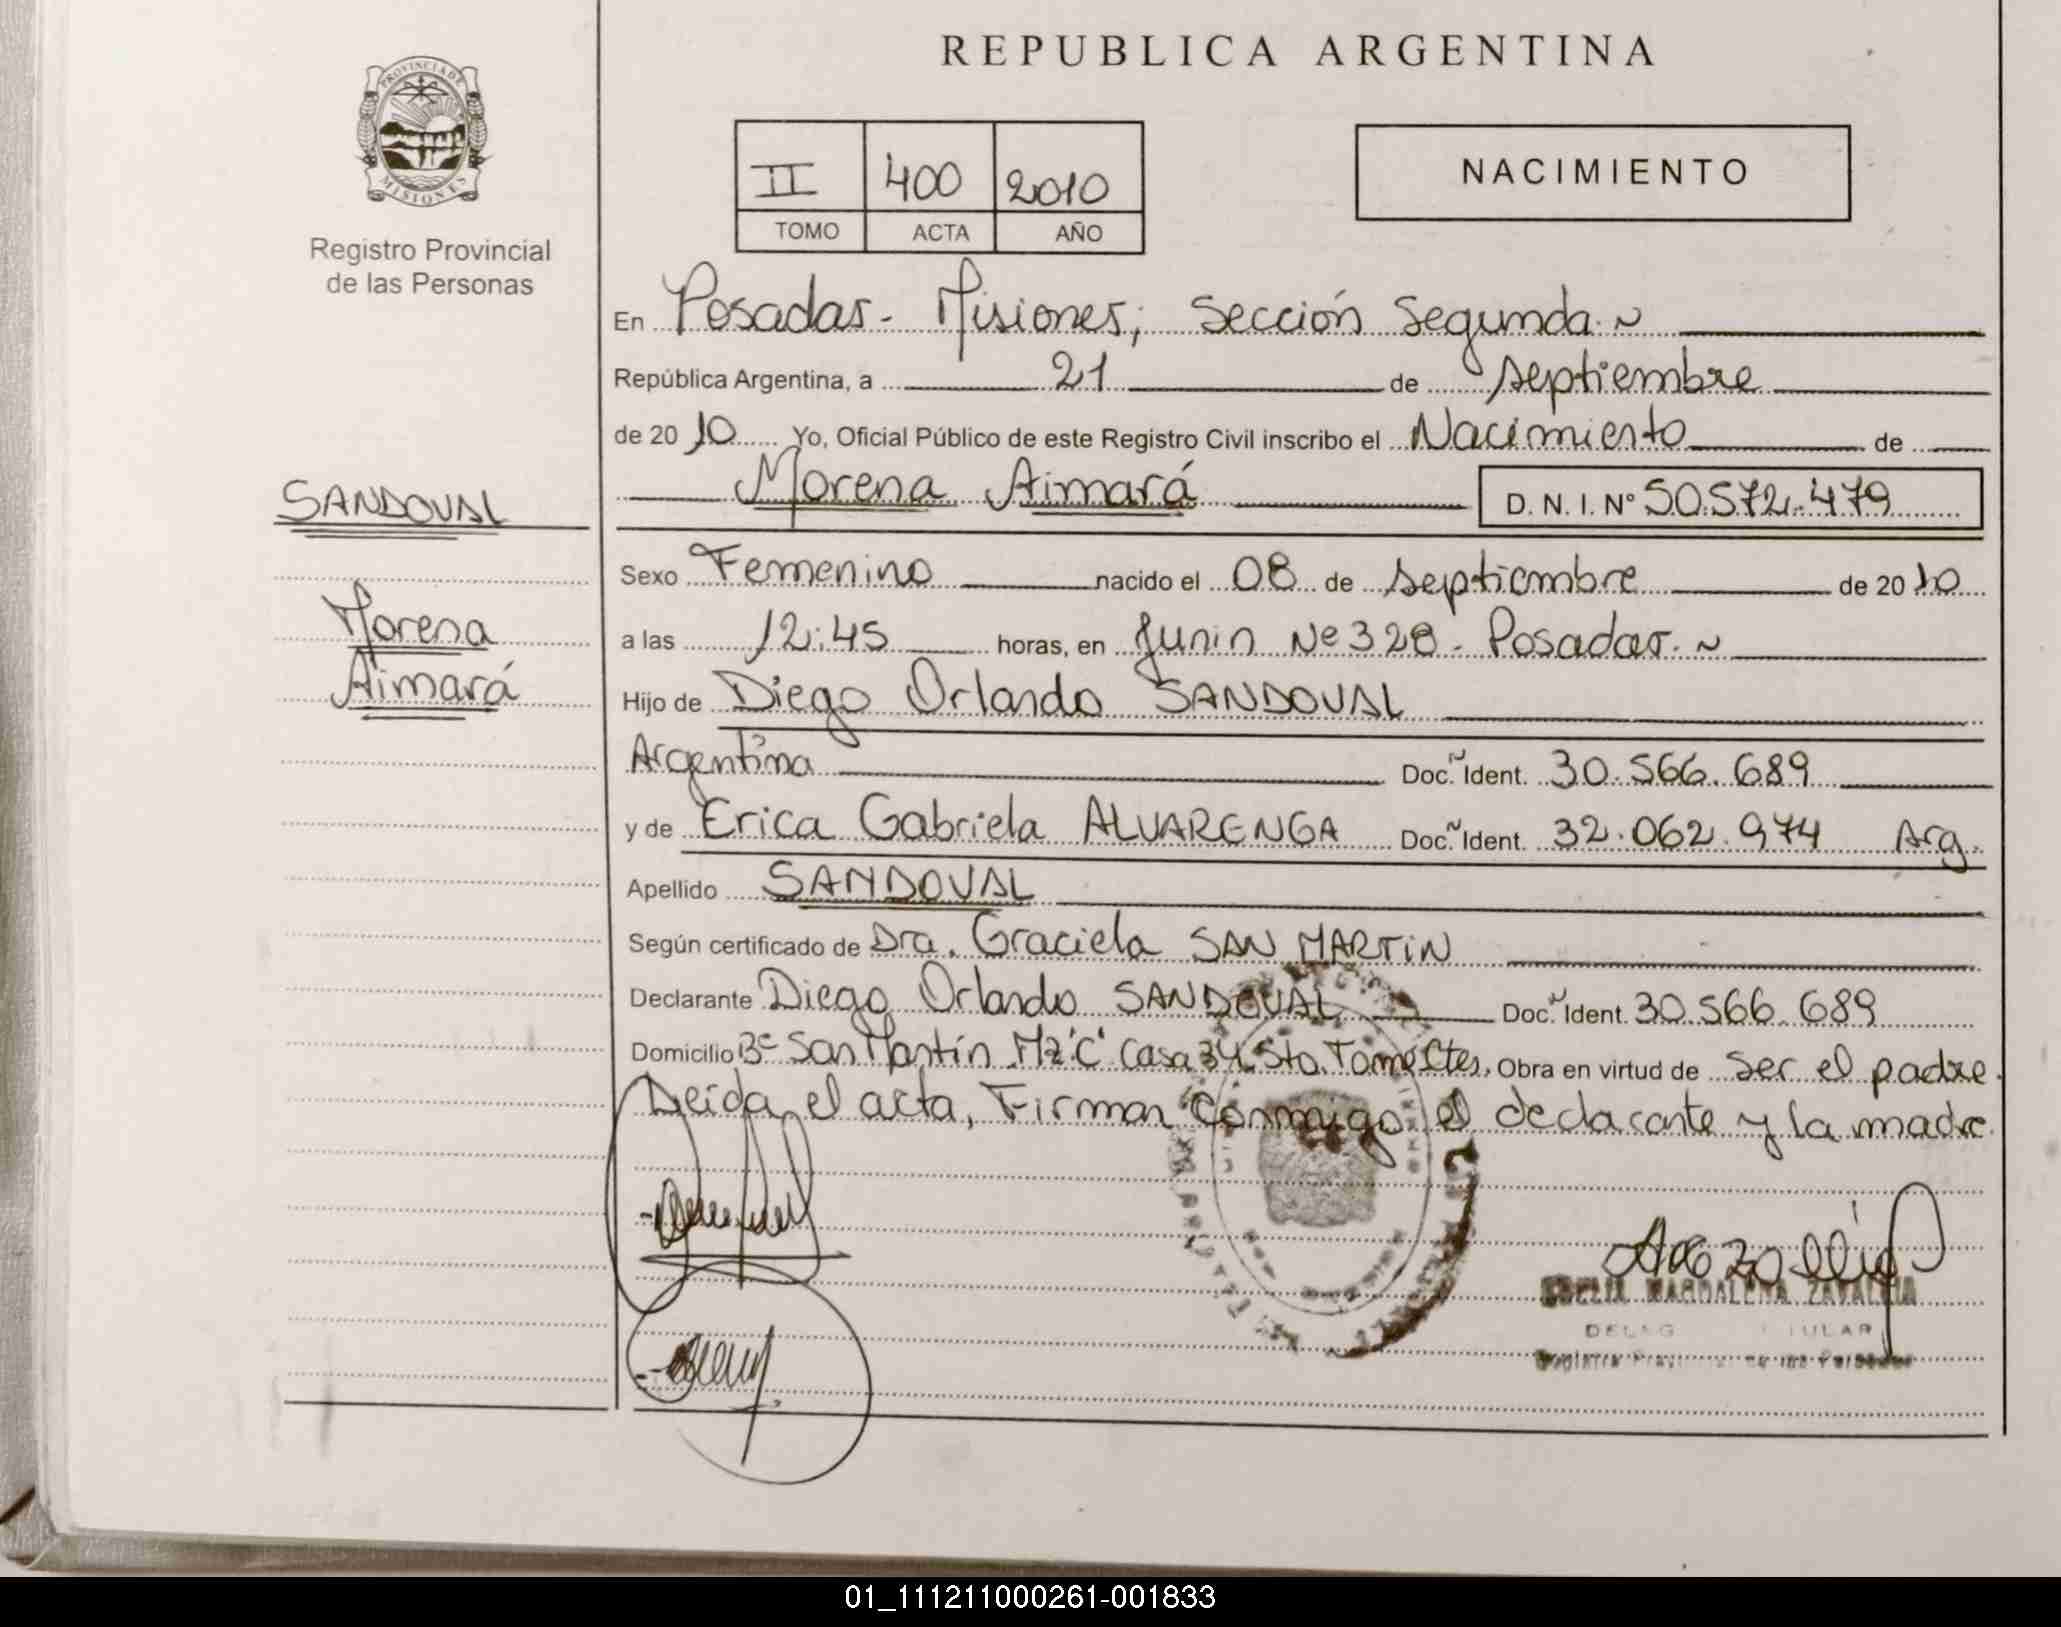 REPUBLICA ARGENTINA
PROVINCIA DE
MISIONES
Registro Provincial
de las Personas
II 400 2010
TOMO ACTA AÑO
NACIMIENTO
En Posadas - Misiones; Sección Segunda.~
República Argentina, a 21 de septiembre
de 2010 Yo, Oficial Público de este Registro Civil inscribo el Nacimiento de
Morena Aimará D. N. I. Nº 50.572.479
SANDOVAL
Morena
Aimará
Sexo Femenino nacido el 08 de septiembre de 2010
a las 12:45 horas, en Junin Nº 328 - Posadas.~
Hijo de Diego Orlando SANDOVAL
Argentina Doc. Ident. 30.566.689
y de Erica Gabriela ALVARENGA Doc. Ident. 32.062.974 Arg.
Apellido SANDOVAL
Según certificado de Dra. Graciela SAN MARTIN
Declarante Diego Orlando SANDOVAL Doc. Ident. 30.566.689
Domicilio Bº San Martín Mz "C" Casa 34 Sto. Tomé Ctes. Obra en virtud de ser el padre.
Leida el acta, Firman conmigo el declarante y la madre
MAGDALENA
01_111211000261-001833